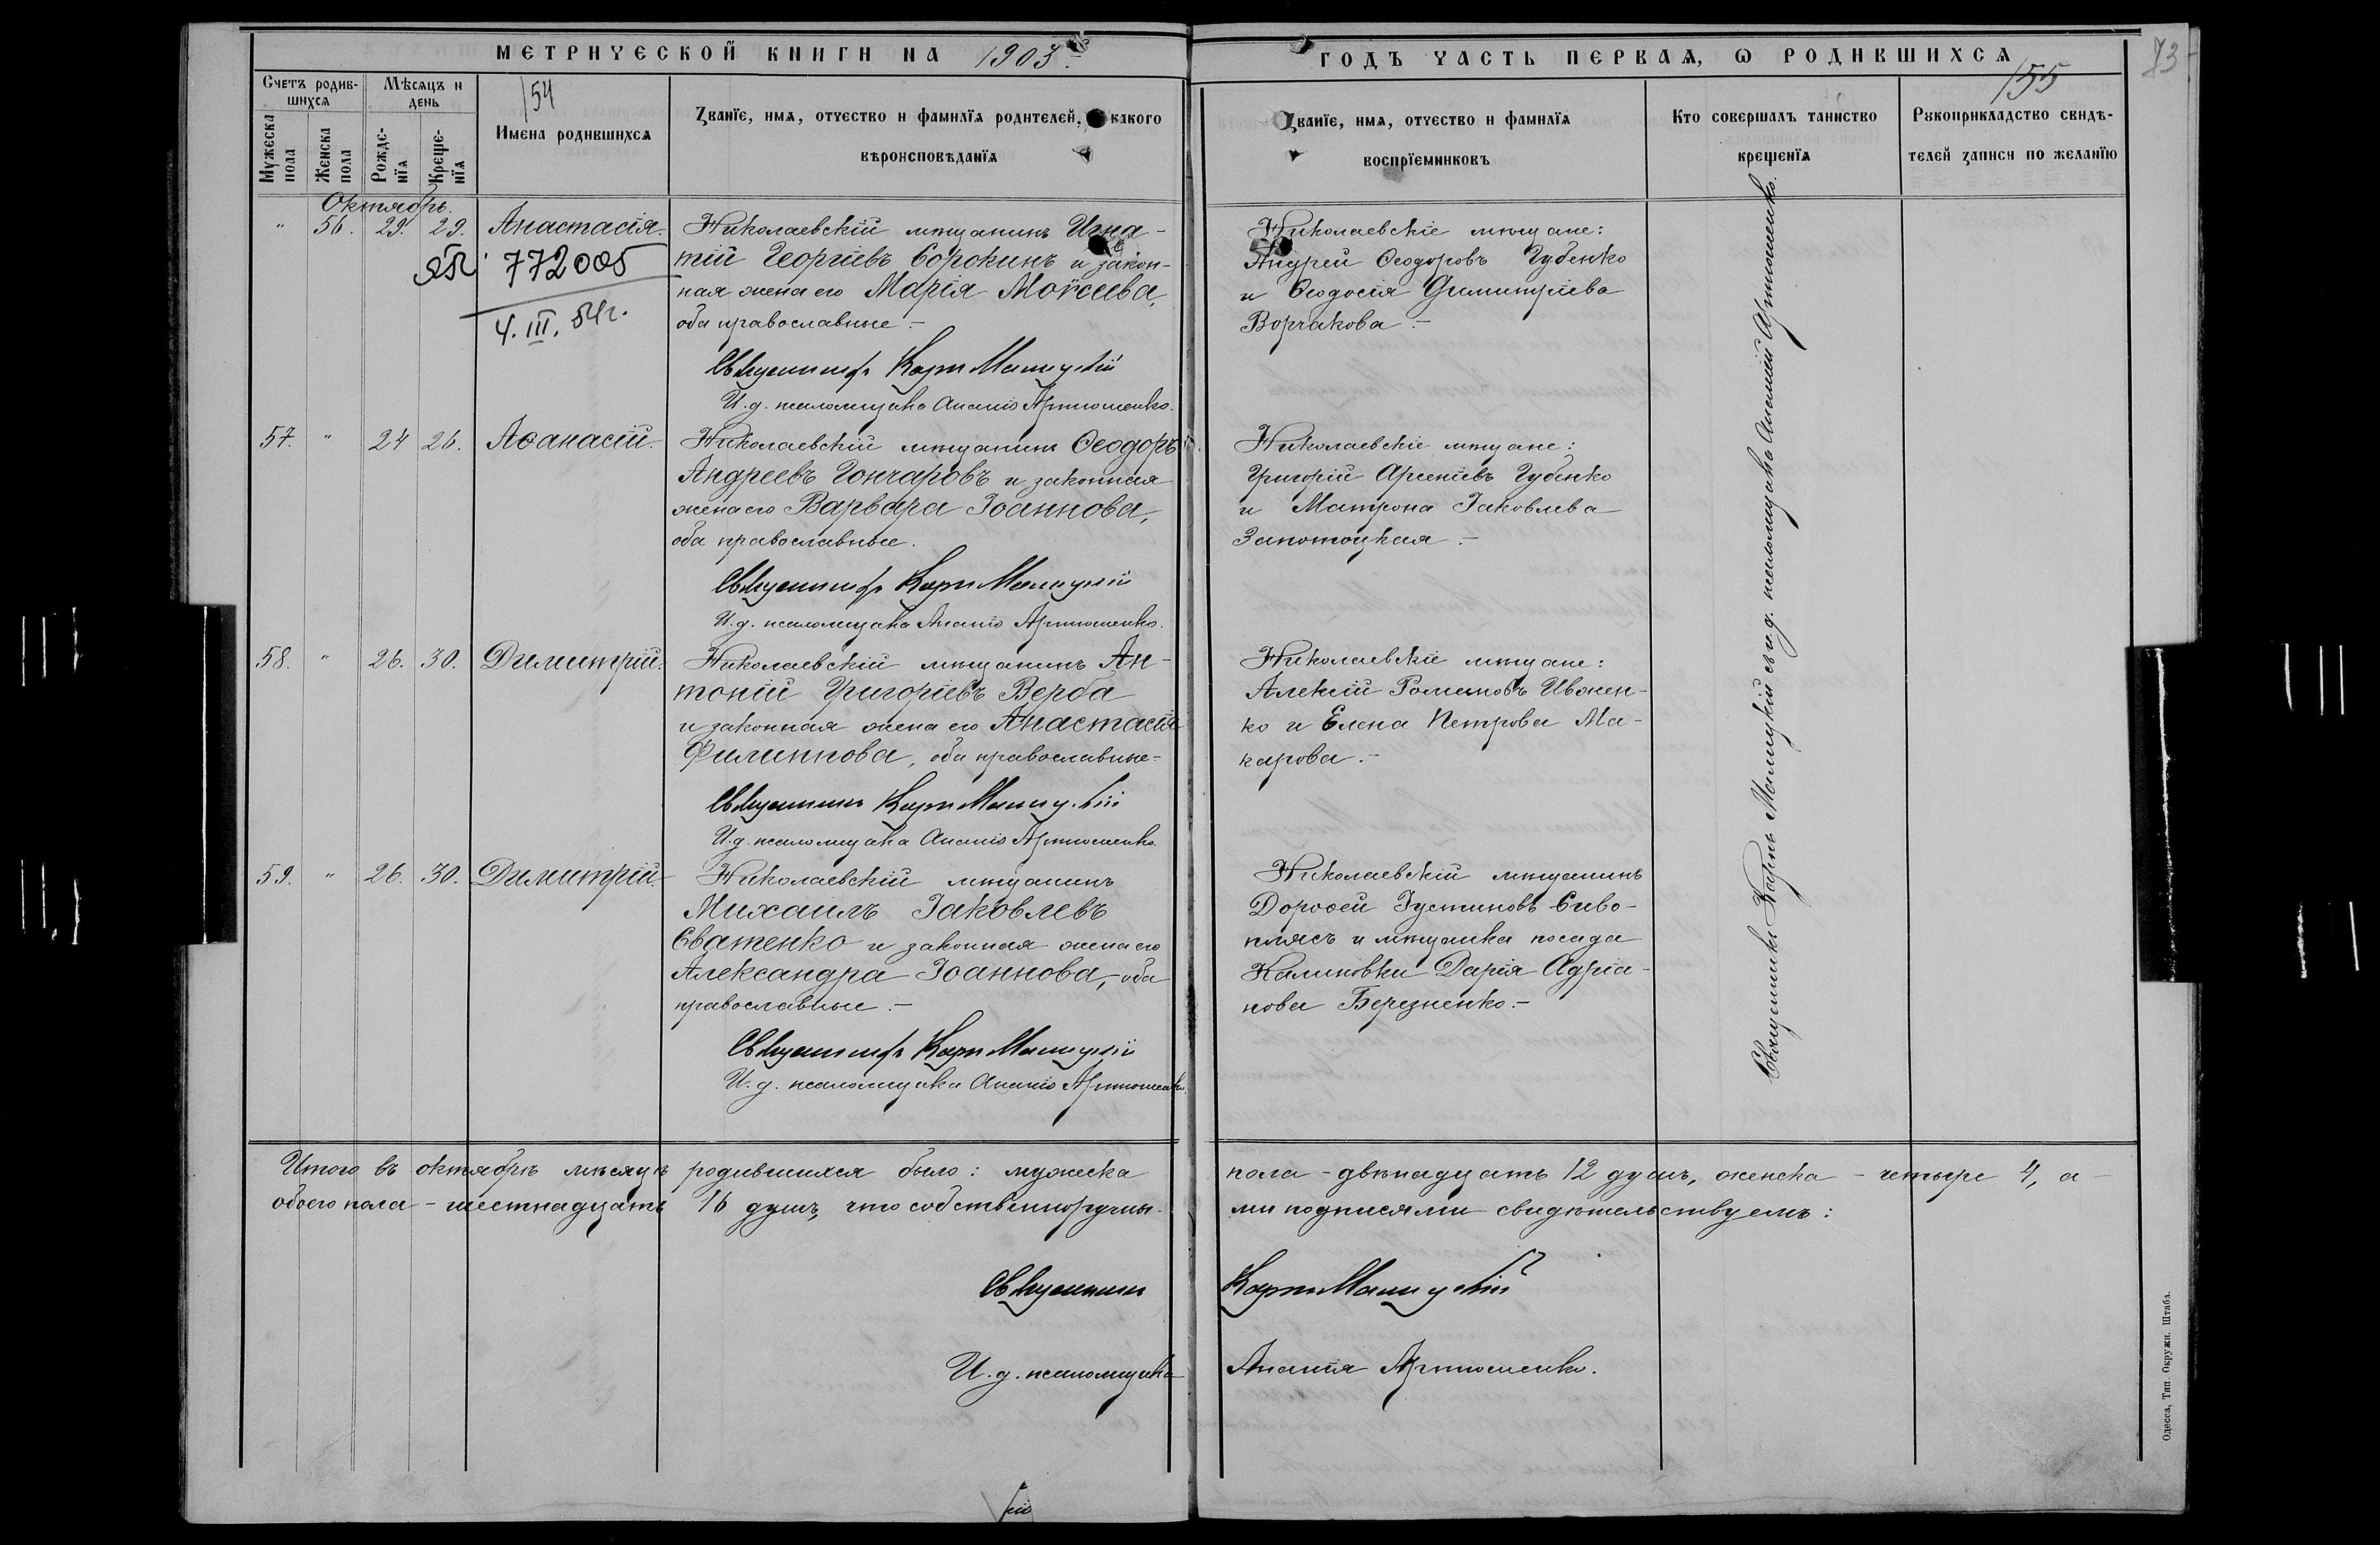 МЕТРИЧЕСКОЙ КНИГИ НА 1903 г.
Счетъ родив-
шихся
Мѣсяцъ и
день
Мужеска
пола
Женска
пола
Рожде-
нія
Креще-
нія
154
Имена родившихся
Званіе, имя, отчество и фамилія родителей, какого
вѣроисповѣданія
Октябрь.
" 56. 29. 29. Анастасія.
772005
4. III. 54г.
Николаевскій мѣщанинъ Игна-
тій Георгіевъ Сорокинъ и закон-
ная жена его Марія Моѵсеева,
оба православные.-
Священникъ Карпъ
И. д. псаломщика Ананія Артюшенко.
57. " 24 26. Аѳанасій.
Николаевскій мѣщанинъ Ѳеодоръ
Андреевъ Гончаровъ и законная
жена его Варвара Іоаннова,
оба православные.
Священникъ Карпъ
И. д. псаломщика Ананія Артюшенко.
58. " 26. 30. Димитрій.
Николаевскій мѣщанинъ Ан-
тоній Григоріевъ Верба
и законная жена его Анастасія
Филиппова, оба православные-
Священникъ Карпъ
И. д. псаломщика Ананія Артюшенко.
59. " 26. 30. Димитрій.
Николаевскій мѣщанинъ
Михаилъ Іаковлевъ
Сватенко и законная жена его
Александра Іоаннова,- оба
православные.-
Священникъ Карпъ
И. д. псаломщика Ананія Артюшенко.
Итого въ октябрѣ мѣсяцѣ родившихся было: мужеска
обоего пола - шестнадцать 16 душъ, что собственноручны-
Священникъ
И. д. псаломщика
ГОДЪ ЧАСТЬ ПЕРВАЯ, Ѡ РОДИВШИХСЯ
73
155
Званіе, имя, отчество и фамилія
воспріемниковъ
Кто совершалъ таинство
крещенія
Рукоприкладство свидѣ-
телей записи по желанію
Николаевскіе мѣщане:
Андрей Ѳеодоровъ Губенко
и Ѳеодосія Димитріева
Ворчакова.-
Николаевскіе мѣщане:
Григорій Арсеніевъ Губенко
и Матрона Іаковлева
Запотоцкая.-
Николаевскіе мѣщане:
Алексій Романовъ Ивжен-
ко и Елена Петрова Ма-
карова.-
Николаевскій мѣщанинъ
Дороѳей Іустиновъ Сиво-
плясъ и мѣщанка посада
Калиновки Дарія Адріа-
нова Березненко.-
Священникъ Карпъ съ и. д. псаломщика Ананіей Артюшенко.
пола - двѣнадцать 12 душъ, женска - четыре 4, а-
ми подписями свидѣтельствуемъ:
Карпъ
Ананія Артюшенко.
Одесса, Тип. Окружн. Штаба.